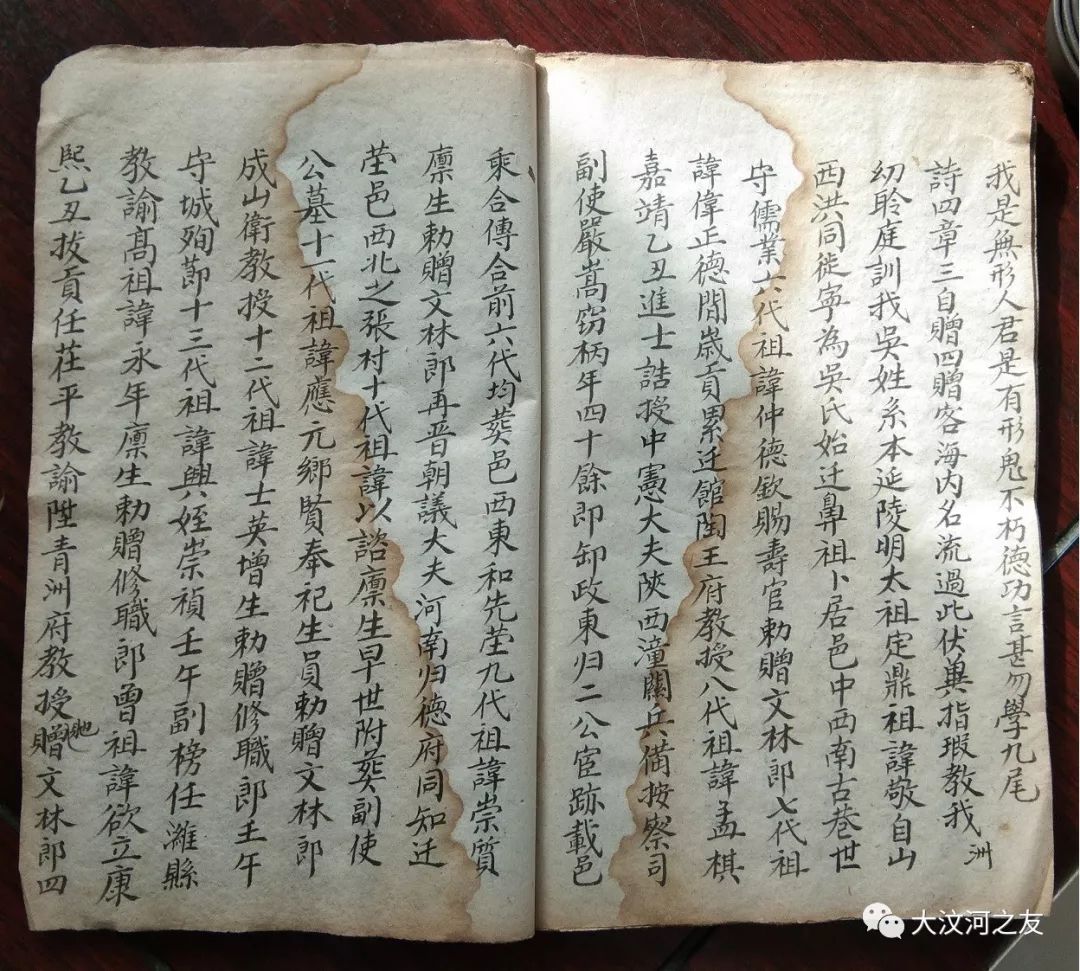 我是無形人君是有形鬼不朽德功言甚勿學九尾
詩四章三自贈四贈客海內名流過此伏兾指瑕教我
洲
幼聆庭訓我吳姓系本延陵明太祖定鼎祖諱敬自山
西洪同徙寧為吳氏始迁鼻祖卜居邑中西南古巷世
守儒業六代祖諱仲德欽賜壽官勅贈文林郎七代祖
諱偉正德間歲貢累迁館陶王府教授八代祖諱孟棋
嘉靖乙丑進士誥授中憲大夫陝西潼關兵備按察司
副使嚴嵩窃柄年四十餘即卸政東归二公宦跡載邑
乘合傳合前六代均葬邑西東和先茔九代祖諱崇質
廪生勅贈文林郎再晋朝議大夫河南归德府同知迁
茔邑西北之張村十代祖諱以諮廪生早世附葬副使
公墓十一代祖諱應元鄉賢奉祀生員勅贈文林郎
成山衛教授十二代祖諱士英增生勅贈修職郎壬午
守城殉莭十三代祖諱興姪崇禎壬午副榜任濰縣
教諭髙祖諱永年廪生勅贈修職郎曾祖諱欲立康
熙乙丑拔貢任茌平教諭陞青洲府教授贈文林郎四
馳
大汶河之友